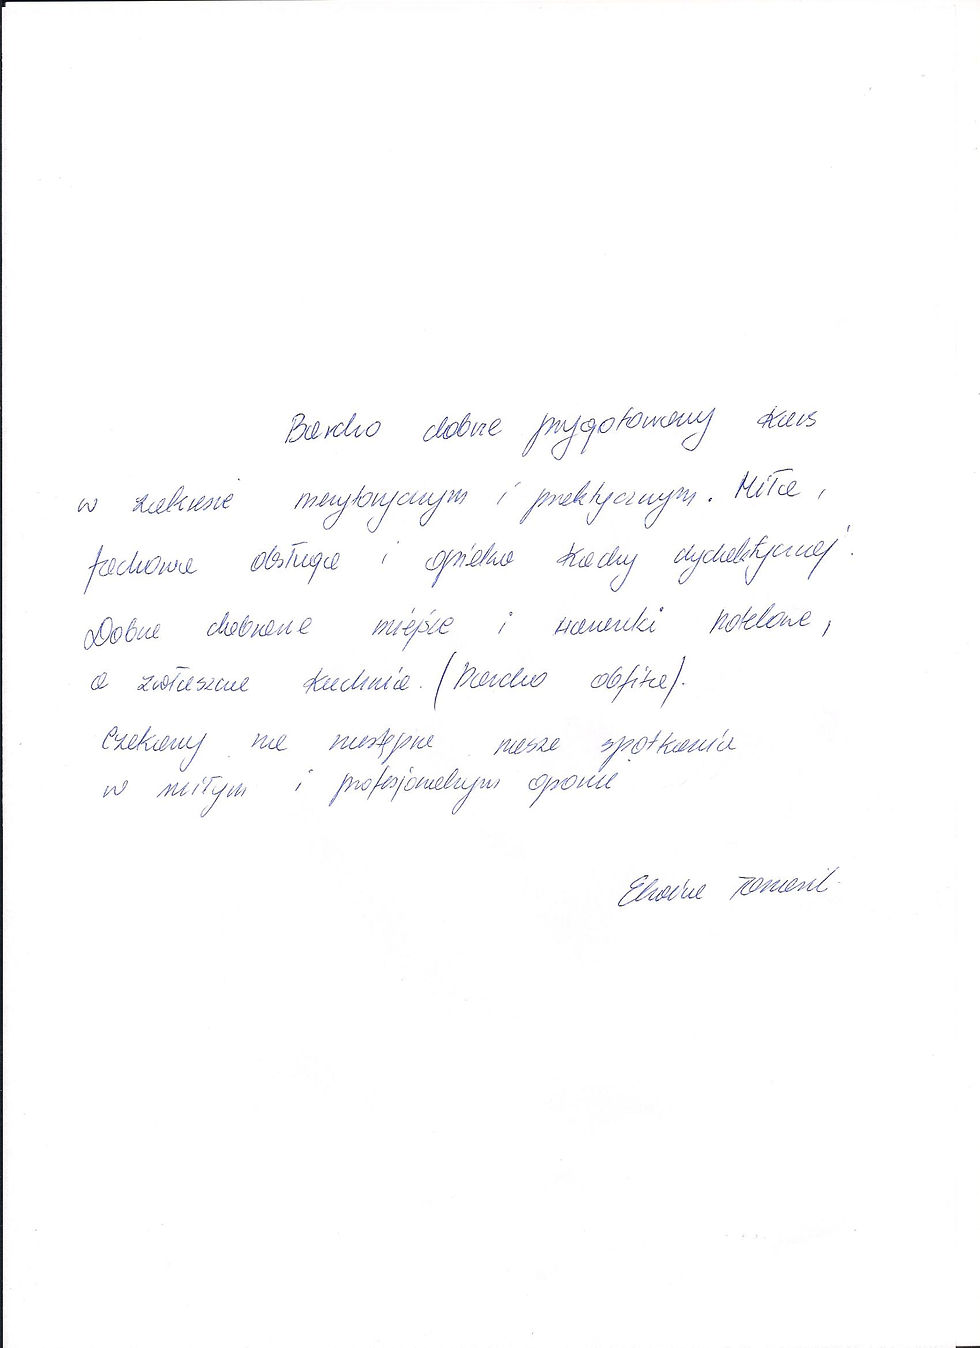 Bardzo dobrze przygotowany kurs
w zakresie merytorycznym i praktycznym. Miła,
fachowa obsługa i opieka kadry dydaktycznej.
Dobrze dobrane miejsce i warunki hotelowe,
a zwłaszcza kuchnia. (Bardzo obfita).
Czekamy na następne nasze spotkania
w miłym i profesjonalnym gronie